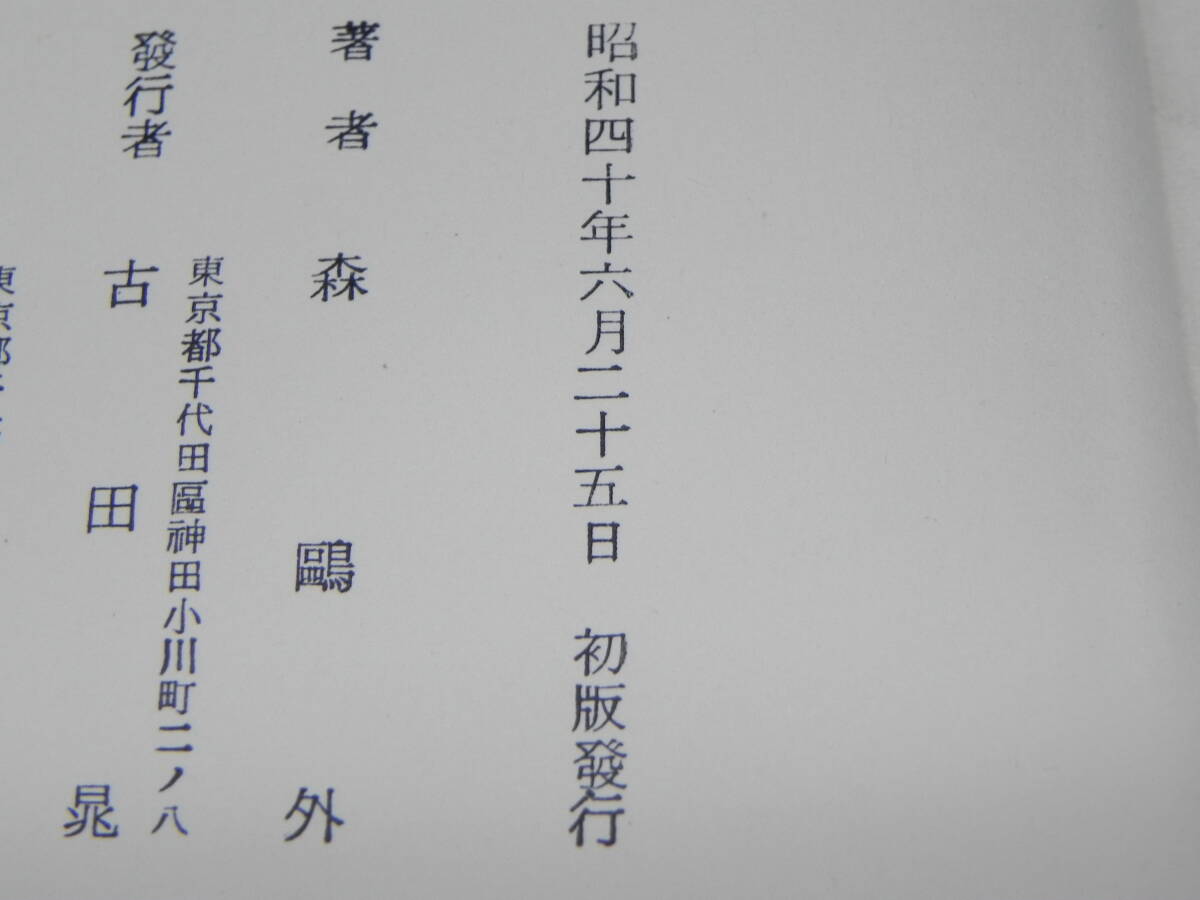 昭和四十年六月二十五日　初版發行
著者　森鷗外
東京都千代田區神田小川町二ノ八
發行者　古田晁
東京都